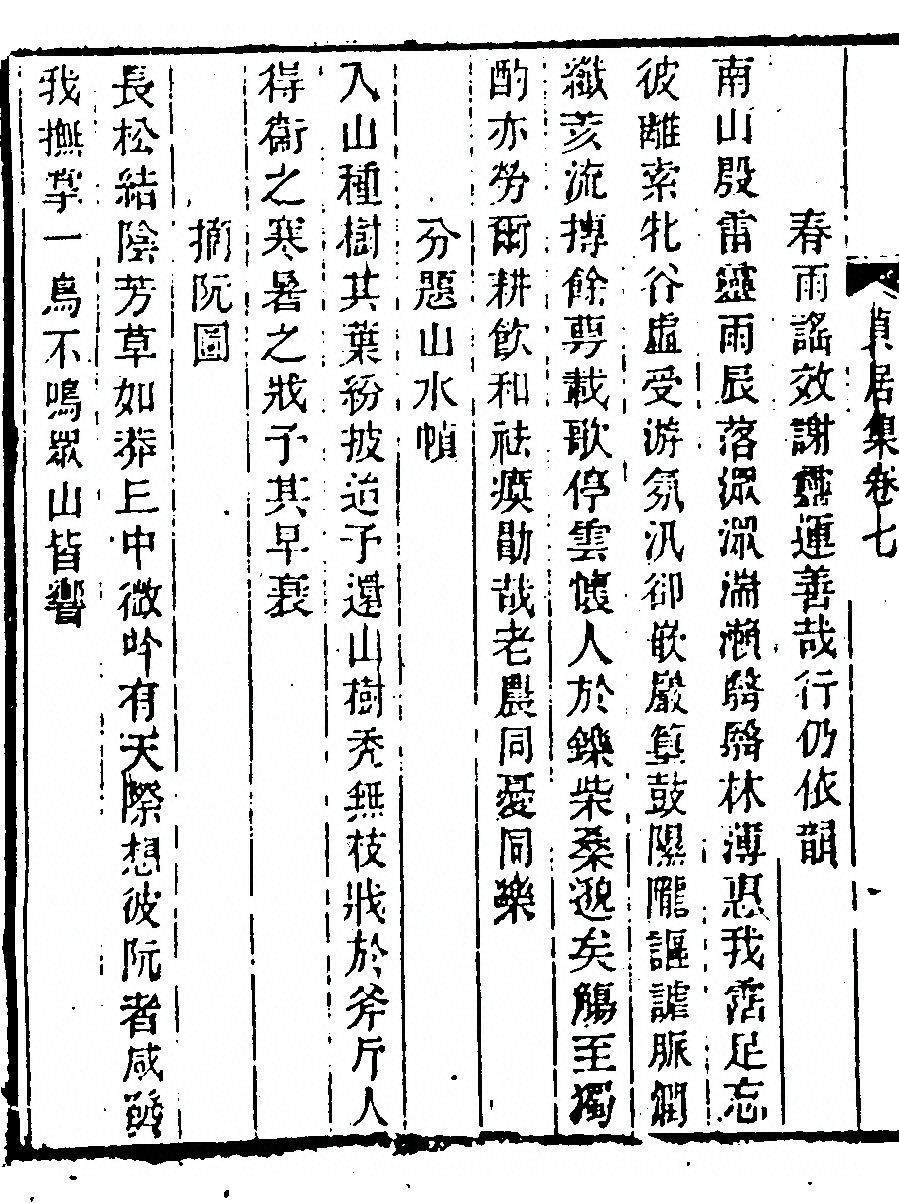 貞居集卷七
春雨謠效謝靈運善哉行仍依韻
南山殷雷靈雨辰落潀潀湍瀨騤騤林薄惠我霑足忘
彼離索牝谷虛受游氛汎卻嵌巖墓鼓隰隴謳謔脈潤
纖荄流摶餘蓴載歌停雲懷人於鑠柴桑邈矣觴至獨
酌亦勞爾耕飲和祛瘼勖哉老農同憂同樂
分題山水幀
入山種樹其葉紛披迨予還山樹禿無枝戕於斧斤人
得衛之寒暑之戕予其早衰
摘阮圖
長松結陰芳草如莽丘中微吟有天際想彼阮者咸
我撫掌一鳥不鳴眾山皆響